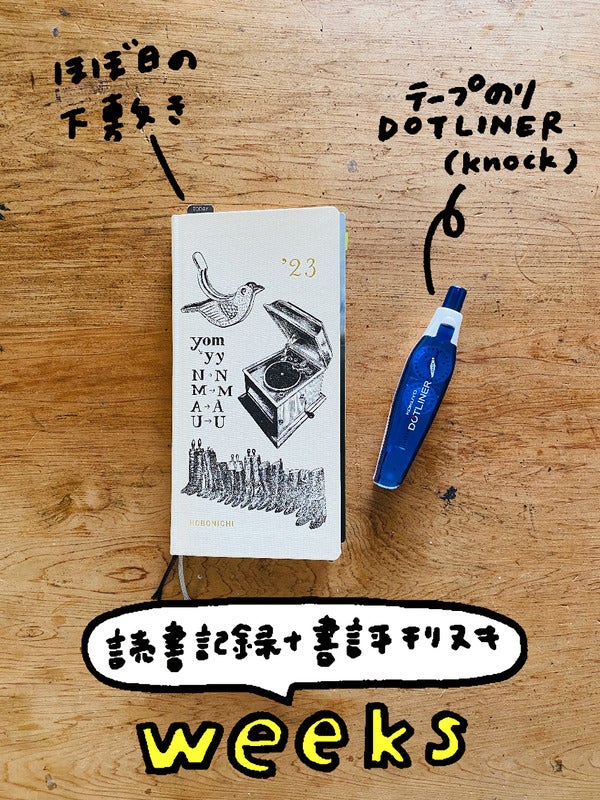 ほぼ日の
下敷き
テープのり
DOTLINER
(knock)
TODAY
'23
yom
yy
N→N
M→M
A→À
U→U
HOBONICHI
KOKUYO
DOTLINER
読書記録+書評キリヌキ
weeks